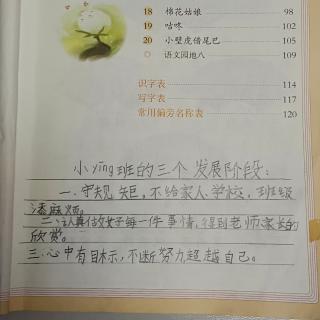 18 棉花姑娘 98
19 咕咚 102
20 小壁虎借尾巴 105
语文园地八 109
识字表 114
写字表 117
常用偏旁名称表 120
小yīng班的三个发展阶段:
一、守规矩,不给家人、学校,班级
添麻烦。
二、认真做好每一件事情,得到老师、家长的
欣赏。
三、心中有目标,不断努力,超越自己。